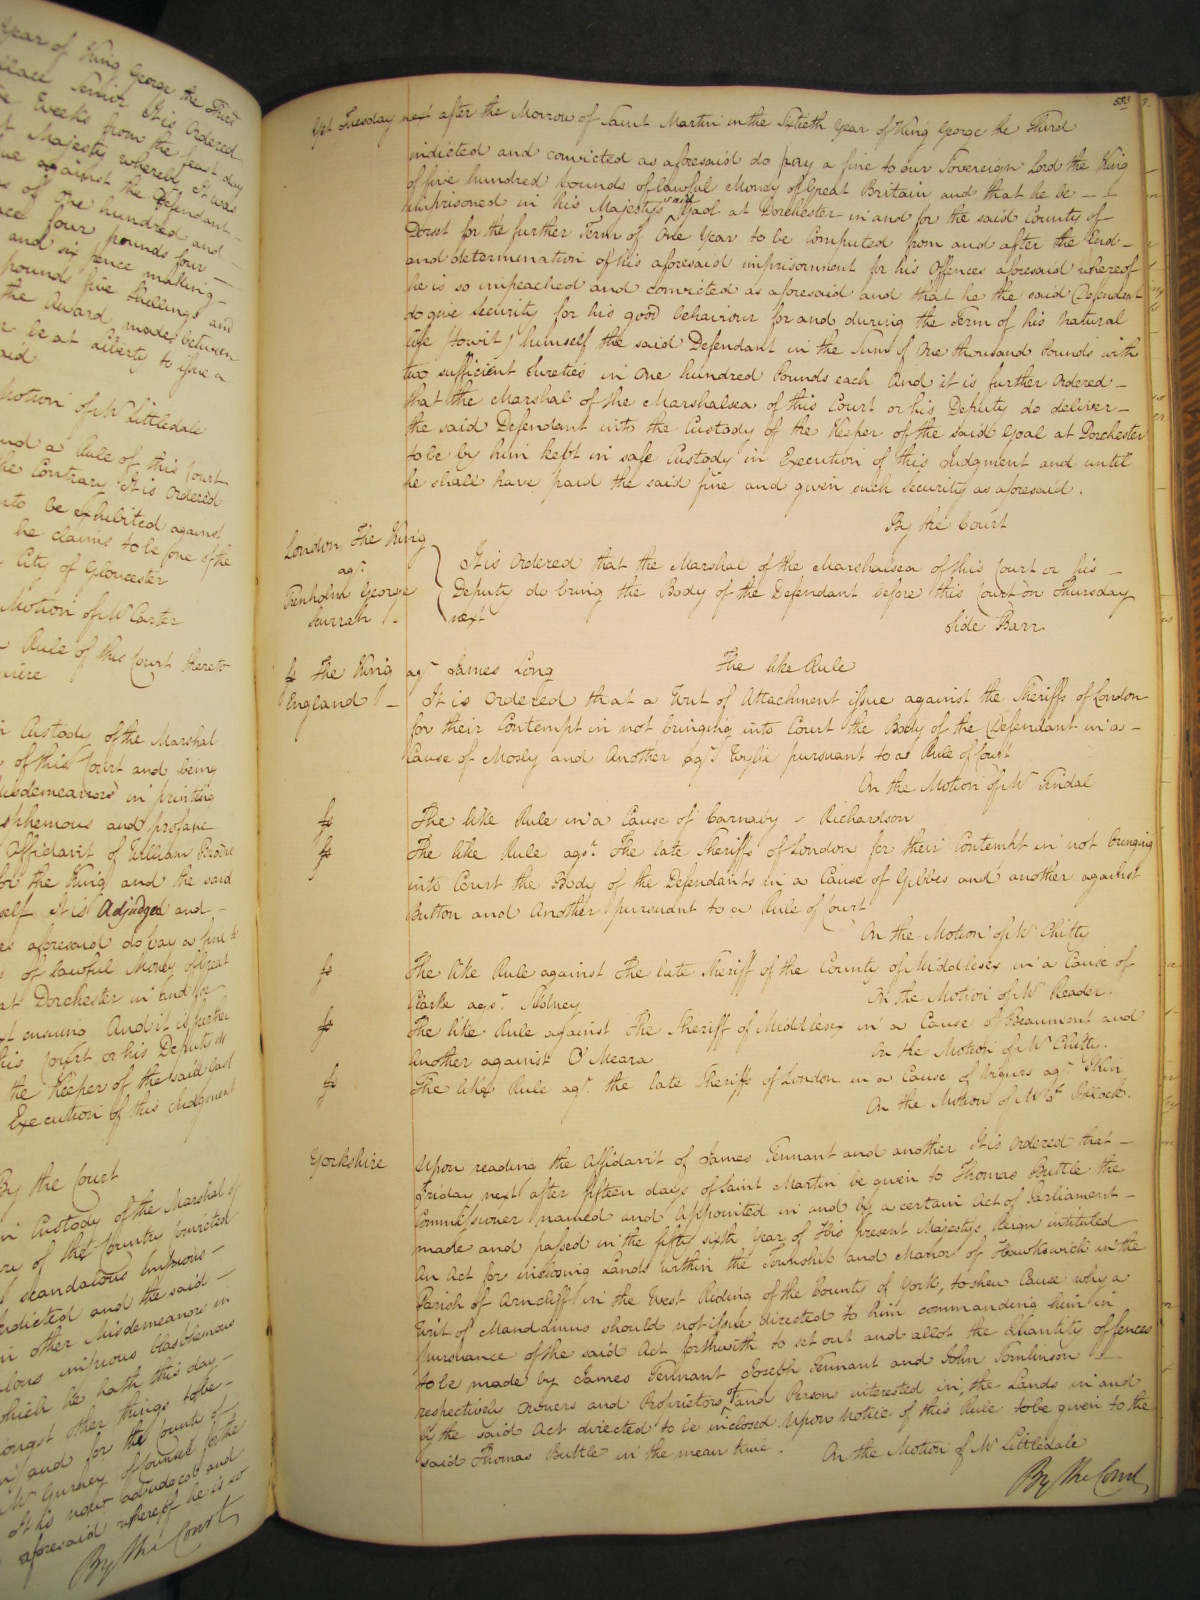 Year of King George the Third
place Servit It is Ordered
Weeks from the feast day
Majesty whereby it was
against the Defendant
of One hundred and
four pounds four
and six pence making
pounds five Shillings and
the Award made between
be at liberty to issue a
aid
Motion of Mr Littledale
and a Rule of this Court
the Contrary It is Ordered
to be exhibited against
he claims to be one of the
City of Gloucester
Motion of Mr Carter
Rule of this Court thereto
in Custody of the Marshal
of this Court and being
Misdemeanors in printing
blasphemous and profane
Affidavit of William
for the King and the said
self It is Adjudged and
es aforesaid do pay a fine to
of lawful Money of Great
at Dorchester in and for
t ensuing And it is further
this Court or his Deputy do
the Keeper of the said Gaol
Execution of this Judgment
By the Court
in Custody of the Marshal of
of the Country convicted
scandalous impious
indicted and the said
in other Misdemeanors in
impious blasphemous
which he hath this day
amongst other things to be
in and for the County of
Mr Gurney of Counsel for the
It is now adjudged and
aforesaid whereof he is so
By the Court
583
Yet Tuesday next after the Morrow of Saint Martin in the Sixtieth Year of King George the Third
indicted and convicted as aforesaid do pay a fine to our Sovereign Lord the King
of five hundred pounds of lawful Money of Great Britain and that he be
imprisoned in his Majestys said Gaol at Dorchester in and for the said County of
Dorset for the further Term of One Year to be Computed from and after the End
and determination of his aforesaid imprisonment for his Offences aforesaid whereof
he is so impeached and convicted as aforesaid and that he the said Defendant
do give security for his good behaviour for and during the Term of his natural
life (to wit) himself the said Defendant in the Sum of One thousand Pounds with
two sufficient Sureties in One hundred Pounds each And it is further Ordered
that the Marshal of the Marshalsea of this Court or his Deputy do deliver
the said Defendant into the Custody of the Keeper of the said Goal at Dorchester
to be by him kept in safe Custody in Execution of this Judgment and until
he shall have paid the said fine and given such security as aforesaid.
By the Court
London The King
agt.
Trenholm George
Surrah
It is Ordered that the Marshal of the Marshalsea of this Court or his
Deputy do bring the Body of the Defendant before this Court on Thursday
next
Side Barr
fs The King agt James Long The like Rule
England It is Ordered that a Writ of Attachment issue against the Sheriffs of London
for their Contempt in not bringing into Court the Body of the Defendant in a
Cause of Mosly and Another agt. Wylie pursuant to a Rule of Court
On the Motion of Mr Tindal
fs The like Rule in a Cause of Carnaby - Richardson
fs The like Rule agst. The late Sheriffs of London for their Contempt in not bringing
into Court the Body of the Defendants in a Cause of Gibbes and another against
Button and Another pursuant to a Rule of Court
On the Motion of Mr Chitty
fs The like Rule against The late Sheriff of the County of Middlesex in a Cause of
Clarke agst. Sidney On the Motion of Mr Reader.
fs The like Rule against The Sheriff of Middlesex in a Cause of Beaumont and
Another against O'Meara On the Motion of Mr Chitty.
fs The like Rule agt. the late Sheriffs of London in a Cause of agt.
On the Motion of Mr Pollock.
Yorkshire Upon reading the Affidavit of James Tennant and another It is Ordered that
Friday next after fifteen days of Saint Martin be given to Thomas Buttle the
Commissioner named and Appointed in and by a certain Act of Parliament
made and passed in the fifty sixth Year of His present Majestys Reign intituled
An Act for inclosing Lands within the Township and Manor of Hawkswick in the
Parish of Arncliff in the West Riding of the County of York, to shew Cause why a
Writ of Mandamus should not issue directed to him commanding him in
pursuance of the said Act forthwith to set out and allot the Quantity of fences
to be made by James Tennant Joseph Tennant and John Tomlinson
respectively Owners and Proprietors of and Persons interested in, the Lands in and
by the said Act directed to be inclosed Upon Notice of this Rule to be given to the
said Thomas Buttle in the mean time. On the Motion of Mr Littledale
By the Court